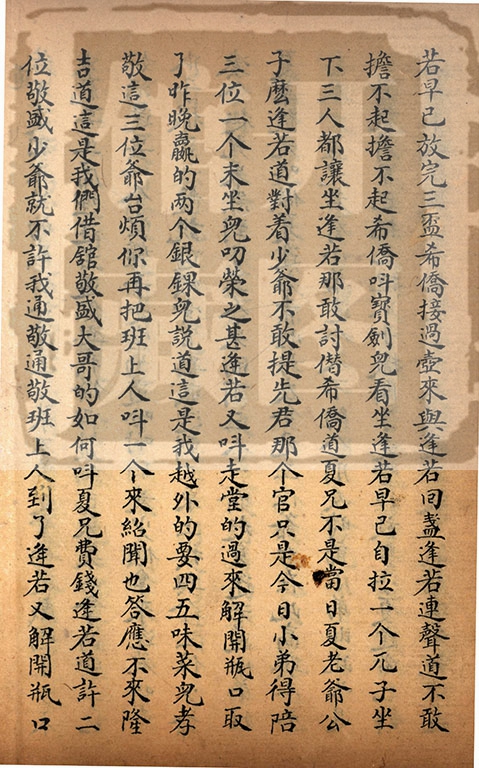 若早已放完三盃希僑接過壺來與逢若回盞逢若連聲道不敢
擔不起擔不起希僑呌寶劍兒看坐逢若早已自拉一个兀子坐
下三人都讓坐逢若那敢討僭希僑道夏兄不是當日夏老爺公
子麽逢若道對着少爺不敢提先君那个官只是今日小弟得陪
三位一个末坐兒叨榮之甚逢若又呌走堂的過來解開瓶口取
了昨晚贏的两个銀錁兒説道這是我越外的要四五味菜兒孝
敬這三位爺台煩你再把班上人呌一个來紹聞也答應不來隆
吉道這是我們借舘敬盛大哥的如何呌夏兄費錢逢若道許二
位敬盛少爺就不許我通敬通敬班上人到了逢若又解開瓶口